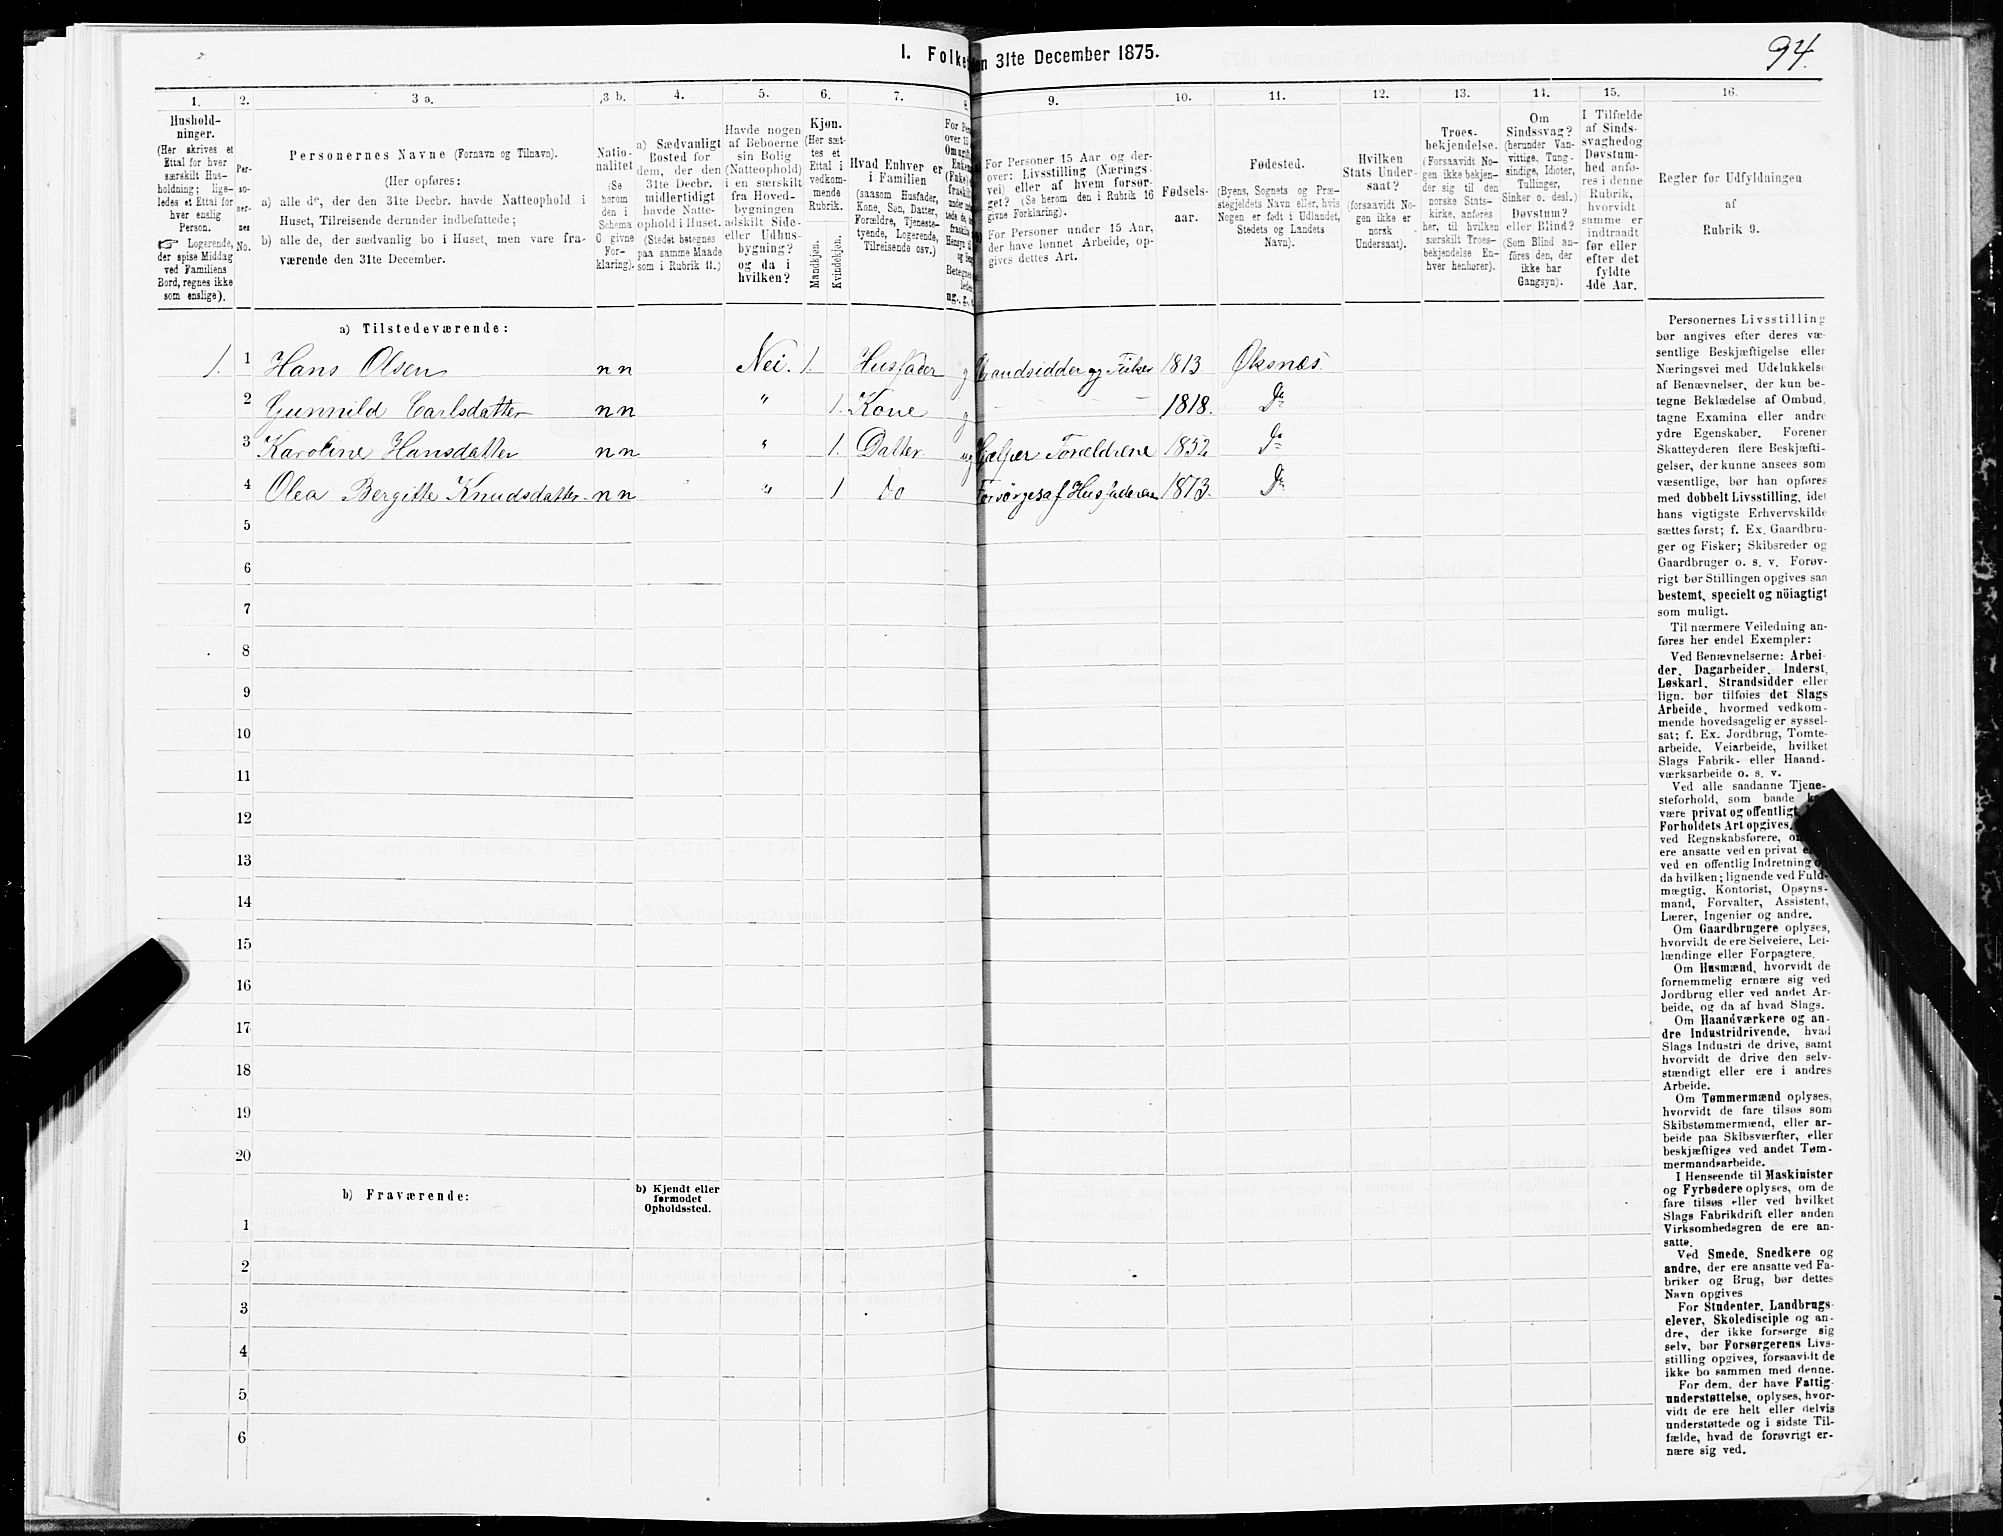 I. Folke
en 31te December 1875.
94.
1. 2. 3 a. 3 b. 4. 5. 6. 7. 8. 9. 10. 11. 12. 13. 14. 15. 16.
Hushold-
ninger.
(Her skrives et
Ettal for hver
særskilt Hus-
holdning; lige-
ledes et Ettal for
hver enslig
Person.
☞ Logerende,
der spise Middag
ved Familiens
Bord, regnes ikke
som enslige).
Per-
so-
ner-
nes
No.
Personernes Navne (Fornavn og Tilnavn).
(Her opføres:
a) alle de, der den 31te Decbr. havde Natteophold i
Huset, Tilreisende derunder indbefattede;
b) alle de, der sædvanlig bo i Huset, men vare fra-
værende den 31te December.
Natio-
nalitet
(Se
herom
den i
Schema
C givne
For-
klaring).
a) Sædvanligt
Bosted for
dem, der den
31te Decbr.
midlertidigt
havde Natte-
ophold i Huset.
(Stedet betegnes
paa samme Maade
som i Rubrik 11.)
Havde nogen
af Beboerne
sin Bolig
(Natteophold)
i en særskilt
fra Hoved-
bygningen
adskilt Side-
eller Udhus-
bygning?
og da i
hvilken?
Kjøn.
(Her sæt-
tes et
Ettal i
vedkom-
mende
Rubrik.
Mandkjøn.
Kvindekjøn.
Hvad Enhver er
i Familien
(saasom Husfader,
Kone, Søn, Datter,
Forældre, Tjeneste-
tyende, Logerende,
Tilreisende osv.)
For Pe
over 15
Om u
Enke
(Fuke)
fraski
under
tede
fraskil
Hensyn
og
Betegne
lede
ug., g.,
For Personer 15 Aar og der-
over: Livsstilling (Nærings-
vei) eller af hvem forsør-
get? (Se herom den i Rubrik 16
givne Forklaring).
For Personer under 15 Aar,
der have lønnet Arbeide, op-
gives dettes Art.
Fødsels-
aar.
Fødested.
(Byens, Sognets og Præ-
stegjeldets Navn eller, hvis
Nogen er født i Udlandet,
Stedets og Landets
Navn).
Hvilken
Stats Under-
saat?
(forsaavidt No-
gen ikke er
norsk
Undersaat).
Troes-
bekjendelse.
(Forsaavidt No-
gen ikke bekjen-
der sig til den
norske Stats-
kirke, anføres
her, til hvilken
særskilt Troes-
bekjendelse En-
hver henhører).
Om
Sindssvag?
(herunder Van-
vittige, Tung-
sindige, Idioter,
Tullinger,
Sinker o. desl.)
Døvstum?
eller Blind?
(Som Blind an-
föres den, der
ikke har
Gangsyn).
I Tilfælde
af Sinds-
svaghed og
Døvstum-
hed anfø-
res i denne
Rubrik,
hvorvidt
samme er
indtraadt
før eller
efter det
fyldte
4de Aar.
Regler før Udfyldningen
af
Rubrik 9.
a) Tilstedeværende:
1. 1 Hans Olsen nn Nei. 1. Husfader g Strandsidder og Fisker 1813 Øksnæs.
2 Gunnild Carlsdatter nn " 1. Kone g — — — 1818. Do
3 Karoline Hansdatter nn " 1. Datter ug Hjælper Foreldrene 1852 Do
4 Olea Bergitte Knudsdatter nn " 1 Do Forsörges af Husfaderen 1873. Do
5
6
7
8
9
10
11
12
13
14
15
16
17
18
19
20
b) Fraværende:
b) Kjendt eller
formodet
Opholdssted.
1
2
3
4
5
6
Personernes Livsstilling
bør angives efter deres væ-
sentlige Beskjæftigelse eller
Næringsvei med Udelukkelse
af Benævnelser, der kun be-
tegne Beklædelse af Ombud,
tagne Examina eller andre
ydre Egenskaber. Forener
Skatteyderen flere Beskjæfti-
gelser, der kunne ansees som
væsentlige, bør han opføres
med dobbelt Livsstilling, idet
hans vigtigste Erhvervskilde
sættes først; f. Ex. Gaardbru-
ger og Fisker; Skibsreder og
Gaardbruger o. s. v. Forøv-
rigt bør Stillingen opgives saa
bestemt, specielt og nöiagtigt
som muligt.
Til nærmere Veiledning an-
føres her endel Exempler:
Ved Benævnelserne: Arbei-
der, Dagarbeider, Inderst,
Løskarl, Strandsidder eller
lign. bør tilføies det Slags
Arbeide, hvormed vedkom-
mende hovedsagelig er syssel-
sat; f. Ex. Jordbrug, Tomte-
arbeide, Veiarbeide, hvilket
Slags Fabrik- eller Haand-
værksarbeide o. s. v.
Ved alle saadanne Tjene-
steforhold, som baade
være privat og offentligt,
Forholdets Art opgives,
ved Regnskabsførere, om
ere ansatte ved en privat e
ved en offentlig Indretning o
da hvilken; lignende ved Fuld-
mægtig, Kontorist, Opsyns-
mand, Forvalter, Assistent,
Lærer, Ingeniør og andre.
Om Gaardbrugere oplyses,
hvorvidt de ere Selveiere, Lei-
lændinge eller Forpagtere.
Om Husmænd, hvorvidt de
fornemmelig ernære sig ved
Jordbrug eller ved andet Ar-
beide, og da af hvad Slags.
Om Haandværkere og an-
dre Industridrivende, hvad
Slags Industri de drive, samt
hvorvidt de drive den selv-
stændigt eller ere i andres
Arbeide.
Om Tømmermænd oplyses,
hvorvidt de fare tilsøs som
Skibstømmermænd, eller ar-
beide paa Skibsværfter, eller
beskjæftiges ved andet Tøm-
mermandsarbeide.
I Henseende til Maskinister
og Fyrbødere oplyses, om de
fare tilsøs eller ved hvilket
Slags Fabrikdrift eller anden
Virksomhedsgren de ere an-
satte.
Ved Smede, Snedkere og
andre, der ere ansatte ved Fa-
briker og Brug, bør dettes
Navn opgives
For Studenter, Landbrugs-
elever, Skoledisciple og an-
dre, der ikke forsørge sig
selv, bør Forsørgerens Livs-
stilling opgives, forsaavidt de
ikke bo sammen med denne.
For dem, der have Fattig-
understøttelse, oplyses, hvor-
vidt de ere helt eller delvis
understøttede og i sidste Til-
fælde, hvad de forøvrigt er-
nære sig ved.